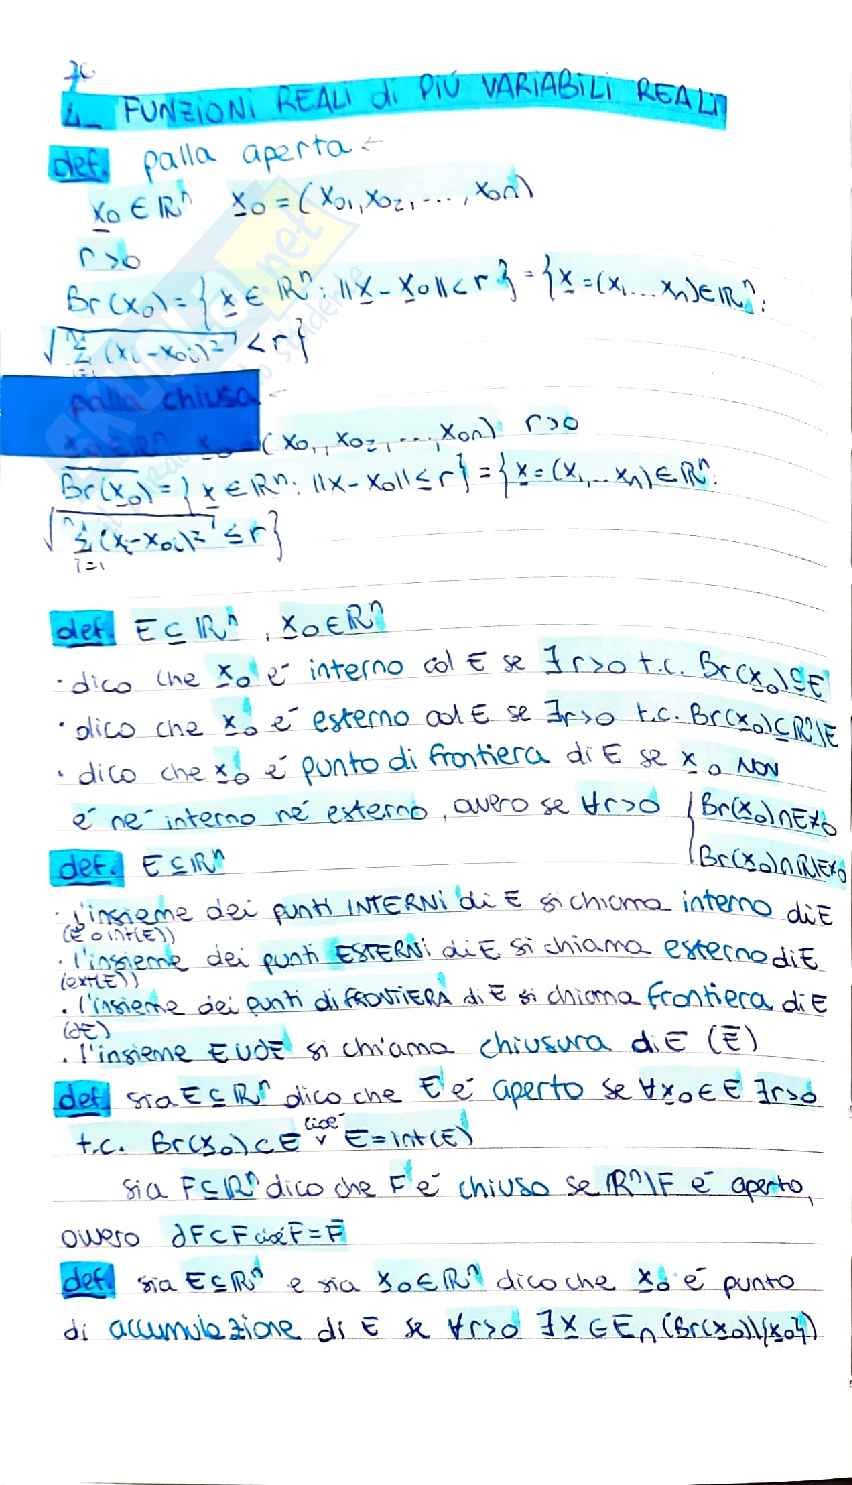 4_ FUNZIONI REALI di PIÚ VARIABILI REALI
def. palla aperta
x0 ∈ ℝⁿ x0 = (x01, x02, ..., x0n)
r>0
Br(x0) = { x ∈ ℝⁿ: ||x - x0|| < r } = { x = (x1...xn) ∈ ℝⁿ:
√Σ(xi-x0i)² < r}
palla chiusa
x0 ∈ ℝⁿ x0 = (x01, x02, ..., x0n) r>0
Br(x0) = { x ∈ ℝⁿ: ||x-x0|| ≤ r } = { x = (x1,..xn) ∈ ℝⁿ:
√Σ(xi-x0i)² ≤ r}
i=1
def. E ⊆ ℝⁿ, x0 ∈ ℝⁿ
· dico che x0 é interno ad E se ∃ r>0 t.c. Br(x0) ⊆ E
· dico che x0 é esterno ad E se ∃ r>0 t.c. Br(x0) ⊆ ℝⁿ\E
· dico che x0 é punto di frontiera di E se x0 NON
é né interno né esterno, ovvero se ∀r>0 { Br(x0)∩E≠∅
Br(x0)∩ℝ\E≠∅
def. E ⊆ ℝⁿ
· l'insieme dei punti INTERNI di E si chiama interno di E
(E̊ o int(E))
· l'insieme dei punti ESTERNI di E si chiama esterno di E
(ext(E))
· l'insieme dei punti di FRONTIERA di E si chiama frontiera di E
(∂E)
· l'insieme E∪∂E si chiama chiusura di E (Ē)
def. sia E ⊆ ℝⁿ dico che E é aperto se ∀x0 ∈ E ∃r>0
t.c. Br(x0) ⊂ E cioé E = int(E)
sia F ⊆ ℝⁿ dico che F é chiuso se ℝⁿ\F é aperto,
ovvero ∂F ⊂ F cioé F = F̄
def. sia E ⊆ ℝⁿ e sia x0 ∈ ℝⁿ dico che x0 é punto
di accumulazione di E se ∀r>0 ∃x ∈ E∩(Br(x0)\{x0})